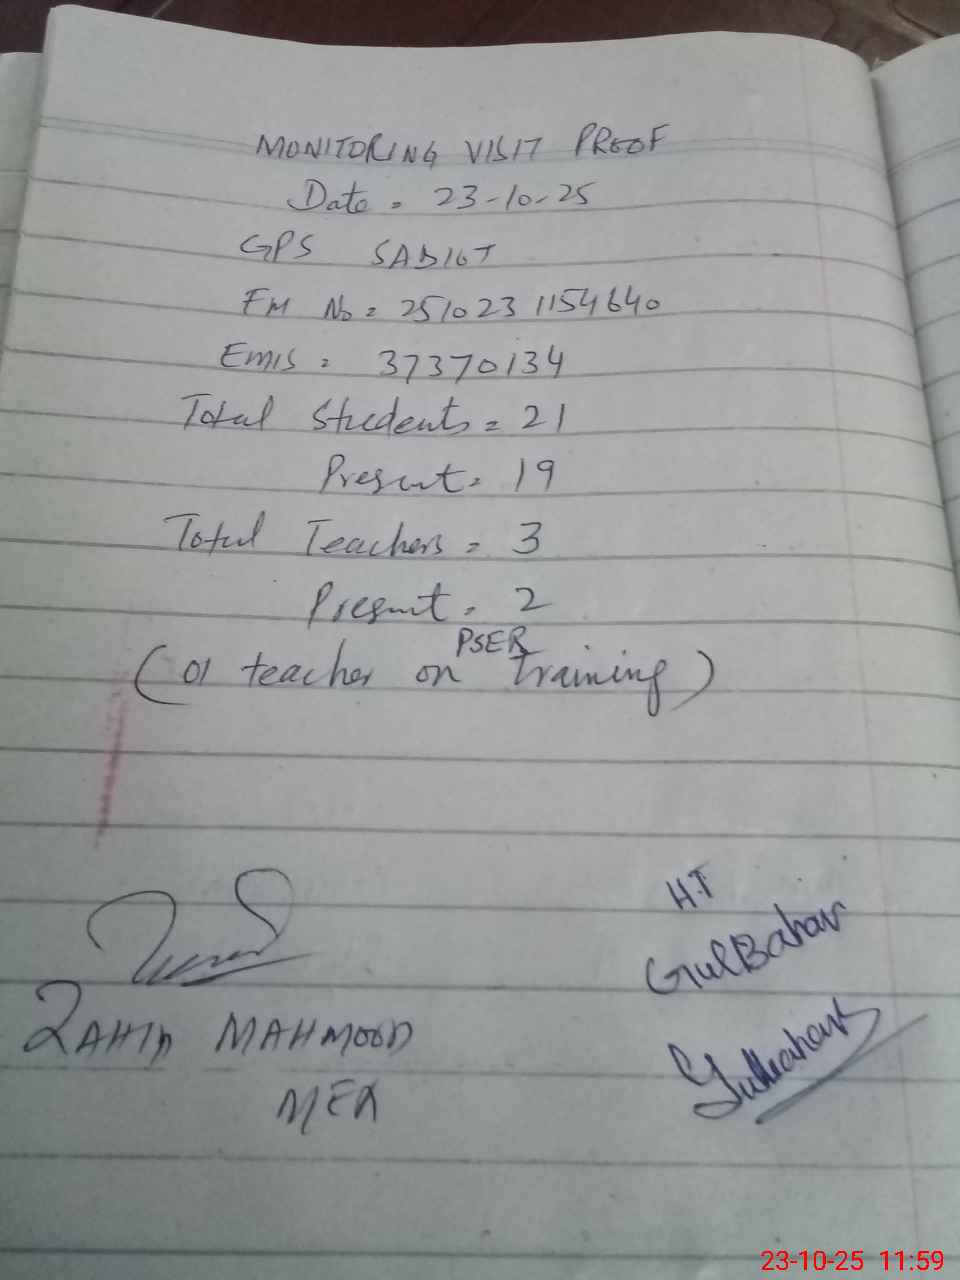 MONITORING VISIT PROOF
Date = 23-10-25
GPS SADIOT
FM No = 251023 1154640
EMIS = 37370134
Total Students = 21
Present = 19
Total Teachers = 3
Present = 2
(01 teacher on PSER training)
ZAHID MAHMOOD
MEA
H.T
GulBahar
23-10-25 11:59